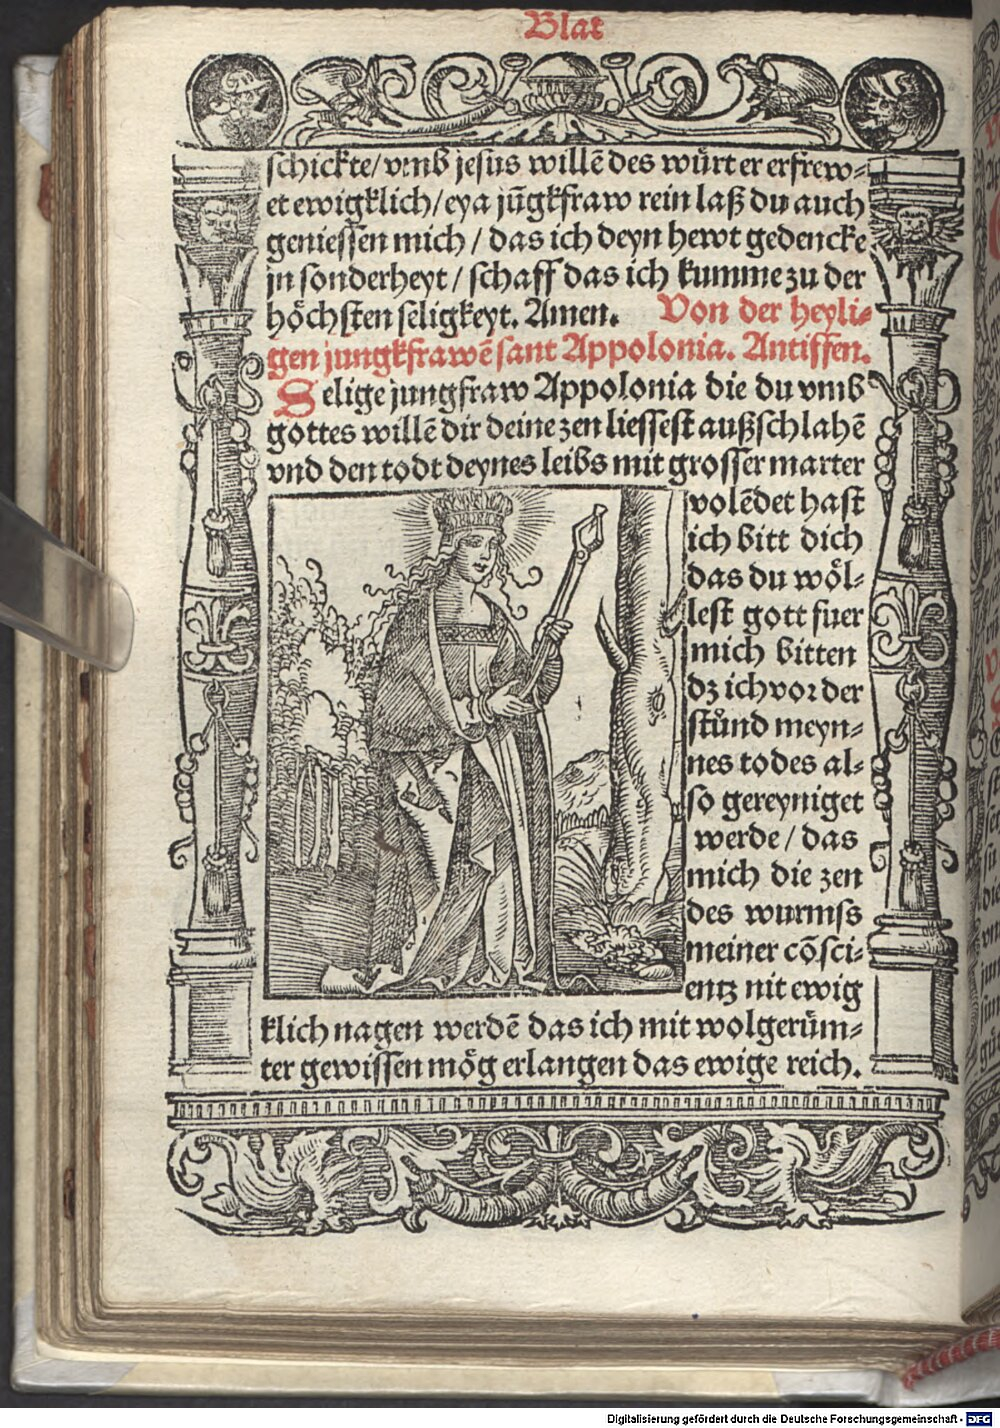 Blat
schickte/ vmb jesus willē des würt er erfrew⸗
et ewigklich/ eya jūgkfraw rein laß du auch
geniessen mich / das ich deyn hewt gedencke
jn sonderheyt / schaff das ich kumme zu der
höchsten seligkeyt. Amen. Von der heyli⸗
gen jungkfrawē sant Appolonia. Antiffen.
Selige jungfraw Appolonia die du vmb
gottes willē dir deine zen liessest außschlahē
vnd den todt deynes leibs mit grosser marter
volēdet hast
ich bitt dich
das du wöl⸗
lest gott fuer
mich bitten
dz ich vor der
stůnd meyn⸗
nes todes al⸗
so gereyniget
werde / das
mich die zen
des wurmss
meiner cōsci⸗
entz nit ewig
klich nagen werdē das ich mit wolgerüm⸗
ter gewissen mög erlangen das ewige reich.
Digitalisierung gefördert durch die Deutsche Forschungsgemeinschaft - DFG